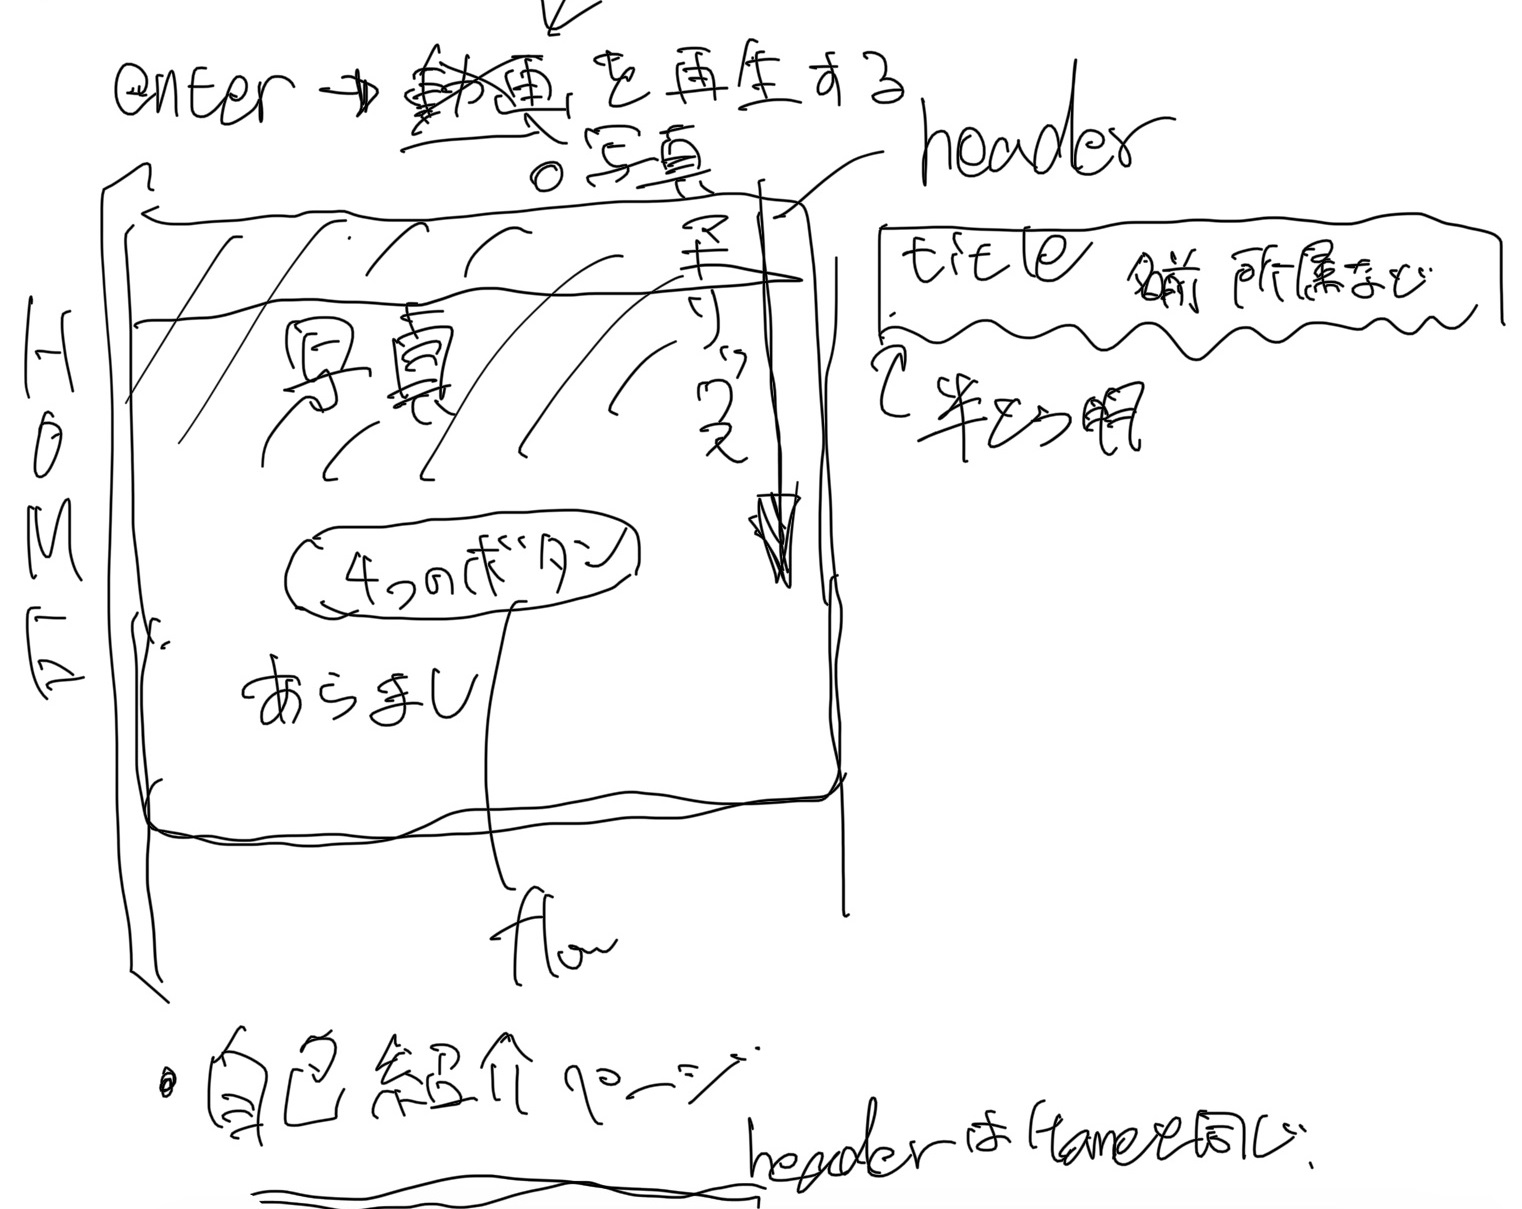 enter → 動画を再生する
写真
header
title 名前 所属など
半とう明
HOME
写真
4つのボタン
あらまし
flow
・自己紹介ページ
headerはHomeと同じ.